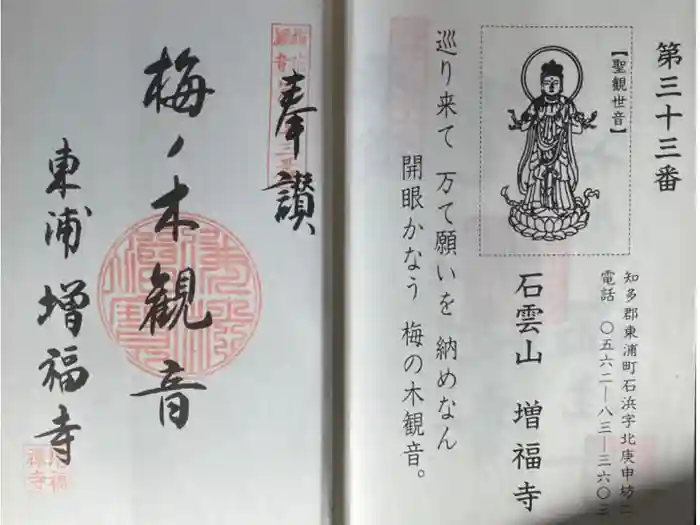 第三十三番
【聖観世音】
知多郡東浦町石浜字北庚申坊二
電話 〇五六二―八三―三六〇三
石雲山 増福寺
巡り来て 万て願いを 納めなん
開眼かなう 梅の木観音。
奉讃
梅ノ木観音
東浦 増福寺